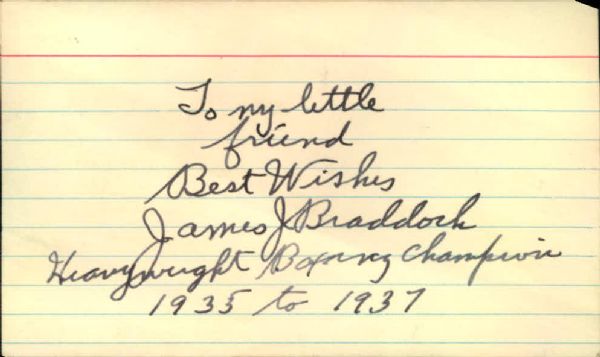 To my little
friend
Best Wishes
James J Braddock
Heavyweight Boxing Champion
1935 to 1937